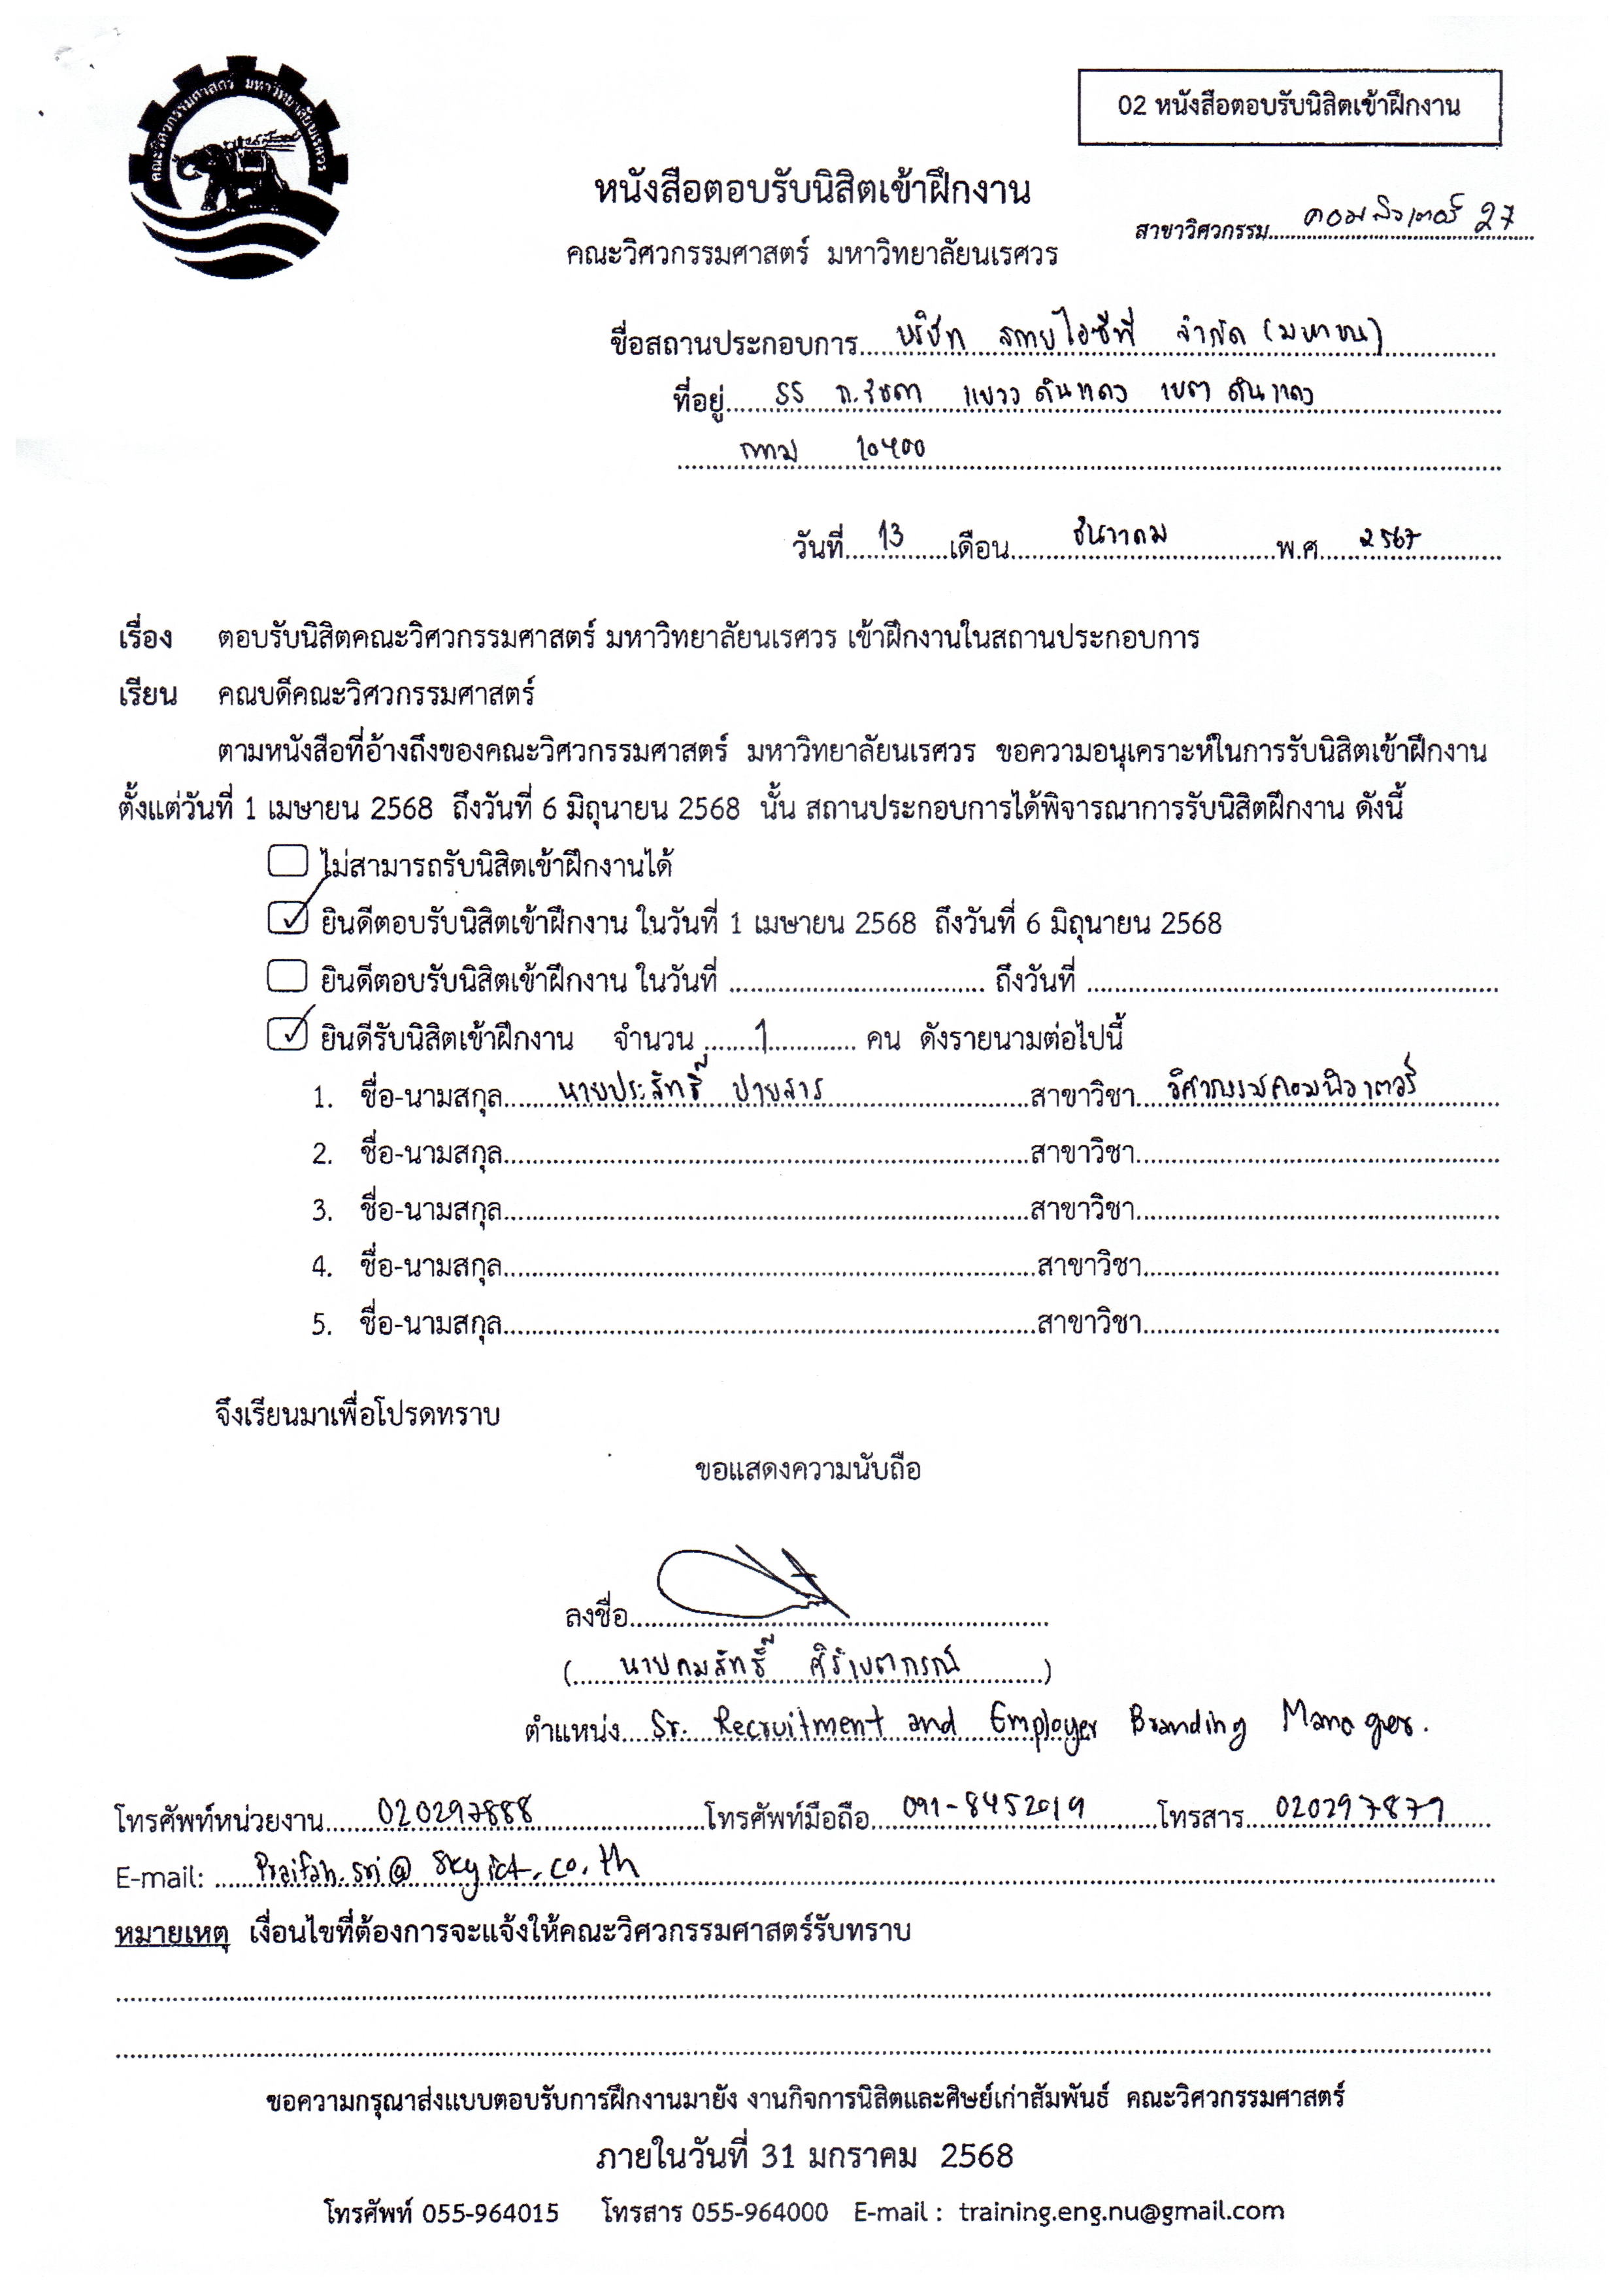 คณะวิศวกรรมศาสตร์ มหาวิทยาลัยนเรศวร
02 หนังสือตอบรับนิสิตเข้าฝึกงาน
หนังสือตอบรับนิสิตเข้าฝึกงาน
สาขาวิศวกรรม คอมพิวเตอร์ 27
คณะวิศวกรรมศาสตร์ มหาวิทยาลัยนเรศวร
ชื่อสถานประกอบการ บริษัท สกายไอซีที จำกัด (มหาชน)
ที่อยู่ 55 ถ.รัชดา แขวง ดินแดง เขต ดินแดง
กทม 10400
วันที่ 13 เดือน ธันวาคม พ.ศ. 2567
เรื่อง ตอบรับนิสิตคณะวิศวกรรมศาสตร์ มหาวิทยาลัยนเรศวร เข้าฝึกงานในสถานประกอบการ
เรียน คณบดีคณะวิศวกรรมศาสตร์
ตามหนังสือที่อ้างถึงของคณะวิศวกรรมศาสตร์ มหาวิทยาลัยนเรศวร ขอความอนุเคราะห์ในการรับนิสิตเข้าฝึกงาน
ตั้งแต่วันที่ 1 เมษายน 2568 ถึงวันที่ 6 มิถุนายน 2568 นั้น สถานประกอบการได้พิจารณาการรับนิสิตฝึกงาน ดังนี้
ไม่สามารถรับนิสิตเข้าฝึกงานได้
ยินดีตอบรับนิสิตเข้าฝึกงาน ในวันที่ 1 เมษายน 2568 ถึงวันที่ 6 มิถุนายน 2568
ยินดีตอบรับนิสิตเข้าฝึกงาน ในวันที่ ถึงวันที่
ยินดีรับนิสิตเข้าฝึกงาน จำนวน 1 คน ดังรายนามต่อไปนี้
1. ชื่อ-นามสกุล นายประสิทธิ์ สาขาวิชา วิศวกรรมคอมพิวเตอร์
2. ชื่อ-นามสกุล สาขาวิชา
3. ชื่อ-นามสกุล สาขาวิชา
4. ชื่อ-นามสกุล สาขาวิชา
5. ชื่อ-นามสกุล สาขาวิชา
จึงเรียนมาเพื่อโปรดทราบ
ขอแสดงความนับถือ
ลงชื่อ
( นายคมสิทธิ์ )
ตำแหน่ง Sr. Recruitment and Employer Branding Manager.
โทรศัพท์หน่วยงาน 020297888 โทรศัพท์มือถือ 091-8452019 โทรสาร 020297879
E-mail: Praifah.sri@skyict.co.th
หมายเหตุ เงื่อนไขที่ต้องการจะแจ้งให้คณะวิศวกรรมศาสตร์รับทราบ
ขอความกรุณาส่งแบบตอบรับการฝึกงานมายัง งานกิจการนิสิตและศิษย์เก่าสัมพันธ์ คณะวิศวกรรมศาสตร์
ภายในวันที่ 31 มกราคม 2568
โทรศัพท์ 055-964015 โทรสาร 055-964000 E-mail : training.eng.nu@gmail.com